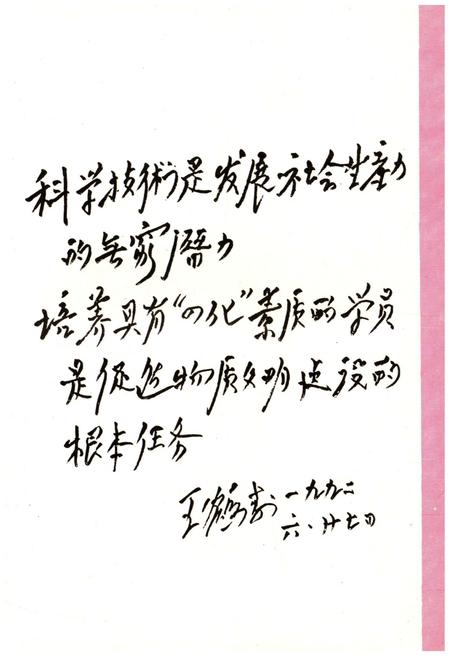 科学技術是发展社会生産力
的無窮潛力
培养具有“四化”素质的学员
是促进物质文明建设的
根本任务
王鹤寿 一九九二
六·廿七日